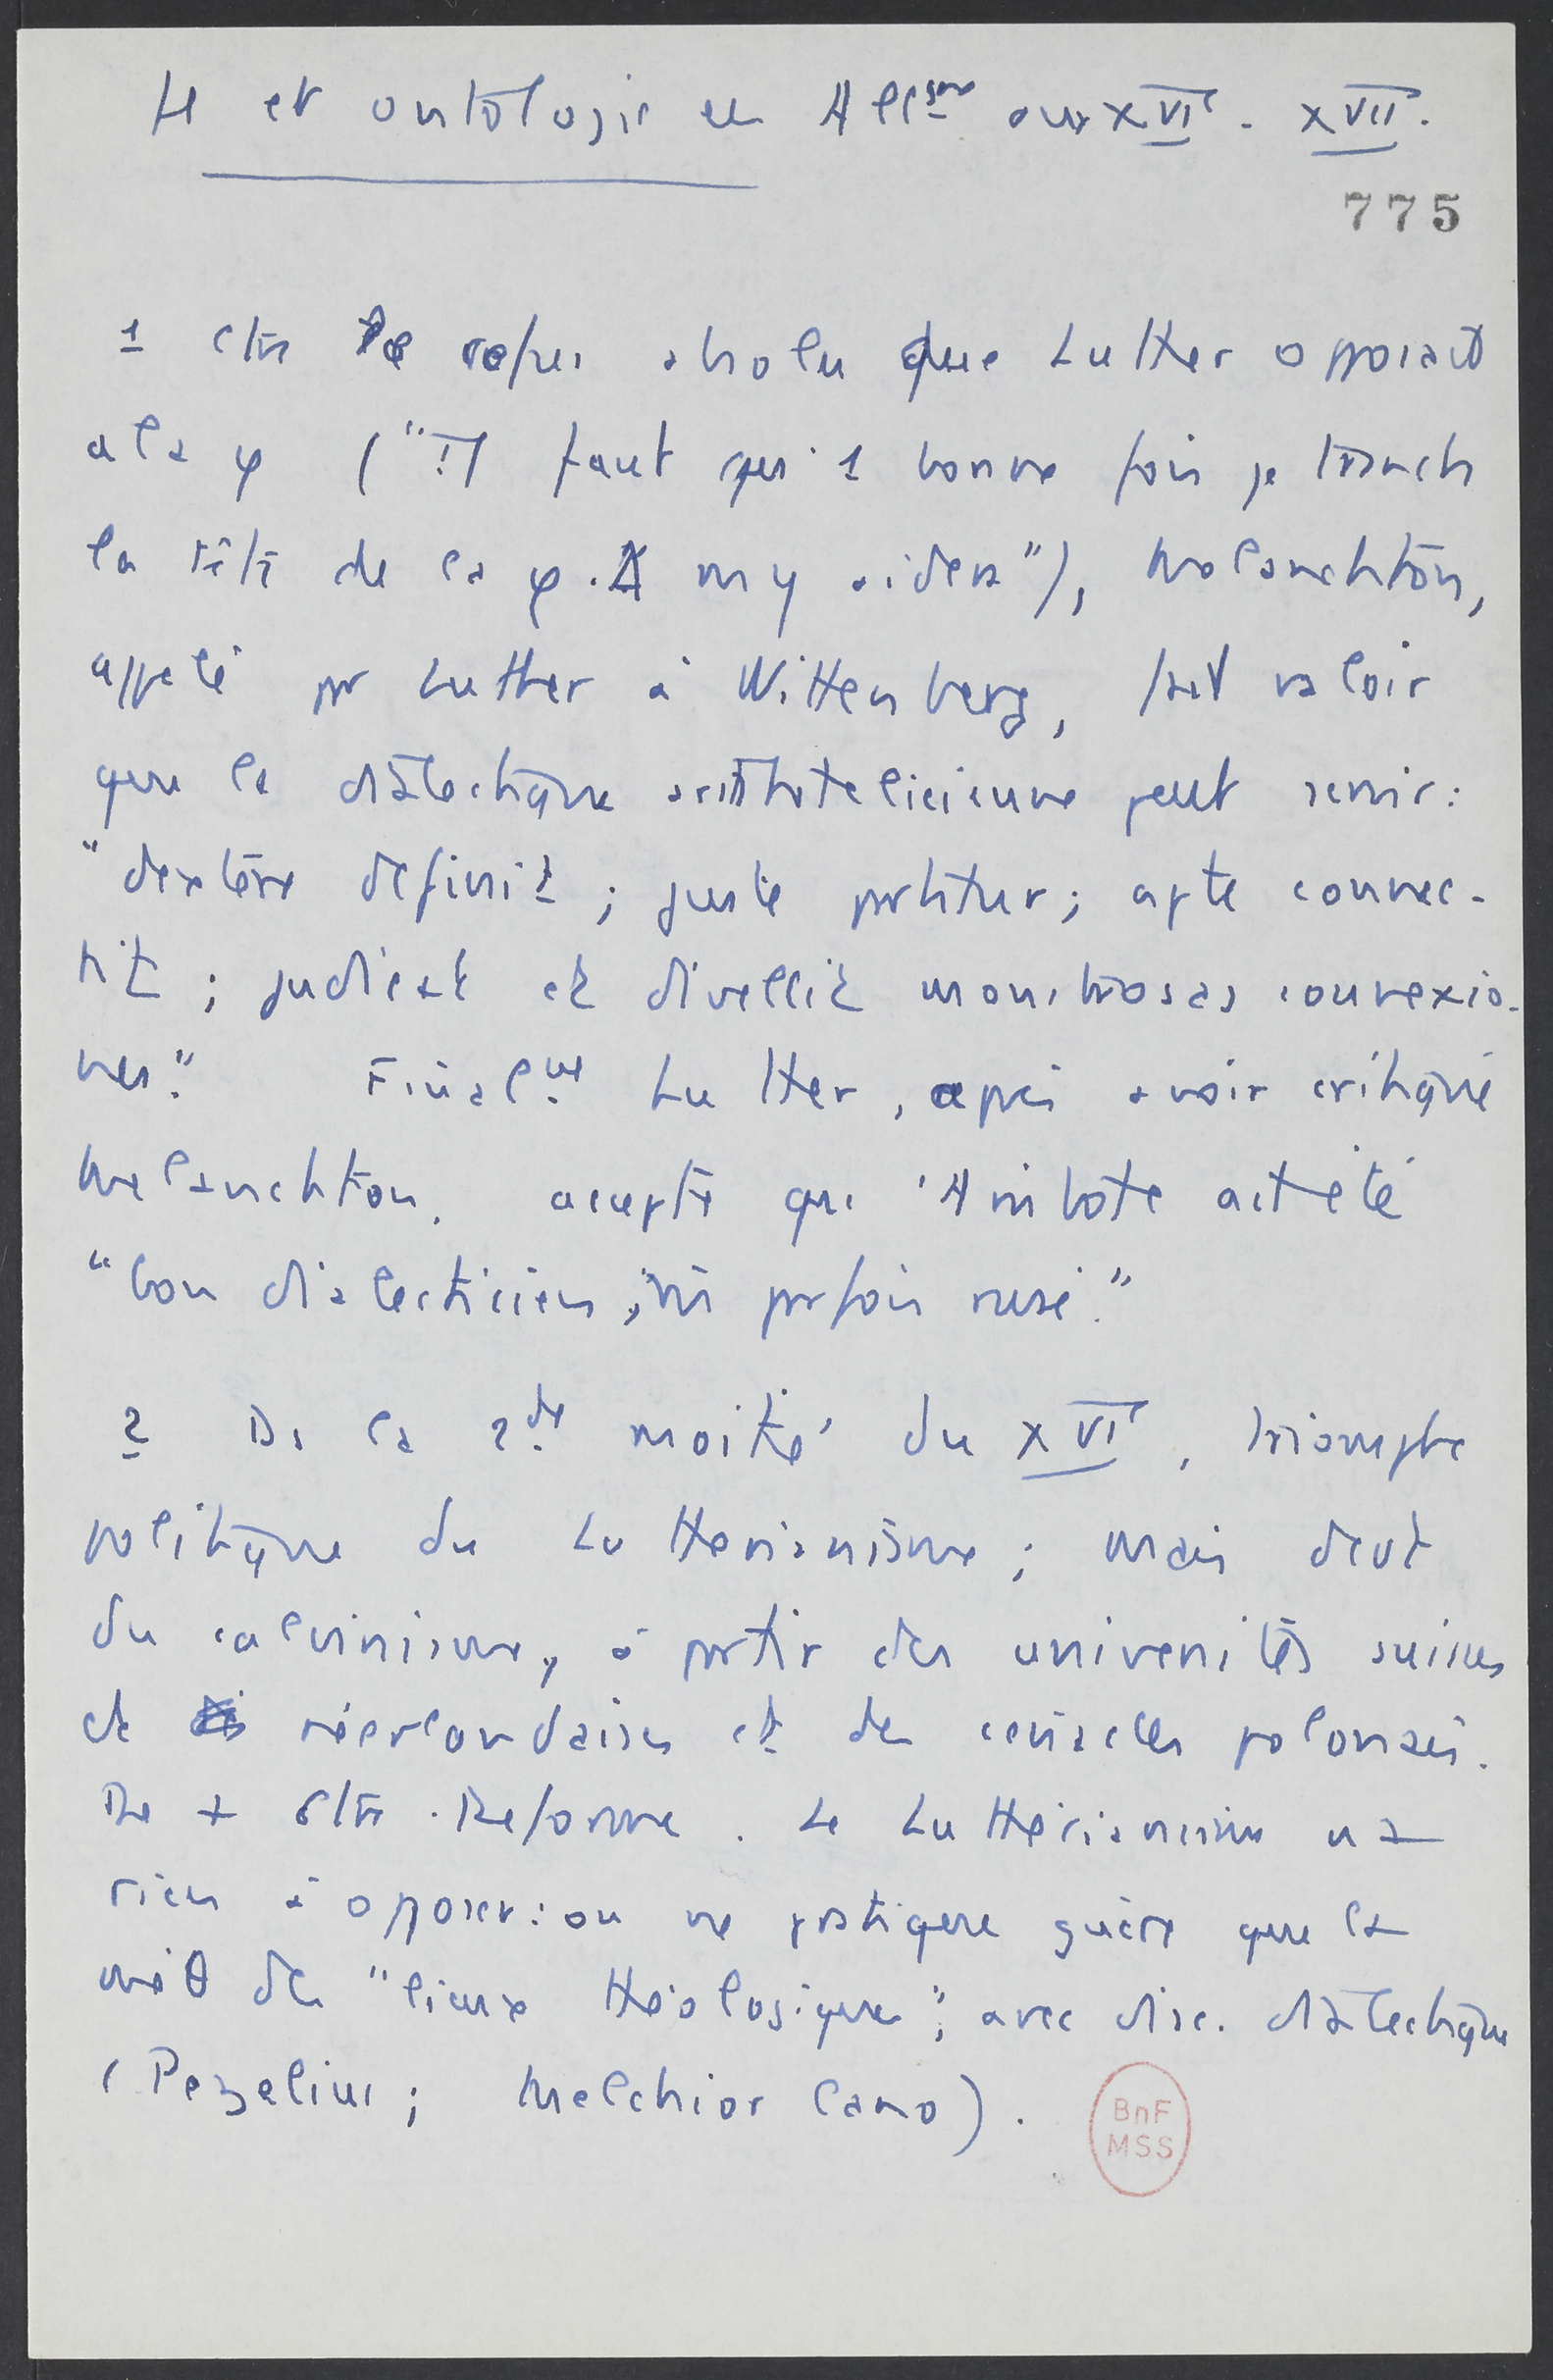 H et ontologie en All<sup>gne</sup> aux XVI<sup>e</sup>. XVII<sup>e</sup>.
775
1 ctre le refus absolu que Luther opposait
a la φ ("Il faut qu'1 bonne fois je tranche
la tête de la φ. A m'y aidera"), Melanchton,
appelé pr Luther à Wittenberg, fait valoir
que la dialectique aristotelicienne peut servir:
"dextere definit; juste partitur; apte connec-
tit; judicat et divellit monstrosas connexio-
nes." Final<sup>me</sup> Luther, après avoir critiqué
Melanchton, accepte qu'Aristote ait été
"bon dialecticien, ms prfois rusé."
2 Ds la 2<sup>de</sup> moitié du XVI<sup>e</sup>, triomphe
politique du Luthérianisme; mais devt
du calvinisme, à prtir des universités suisses
et néerlandaises et des cénacles polonais.
De + Ctre-Reforme. Le Luthérianisme n'a
rien à opposer: on ne pratique guère que la
méθ des "lieux théologiques", avec disc. dialectique
(Pezelius; Melchior Cano).
BnF
MSS